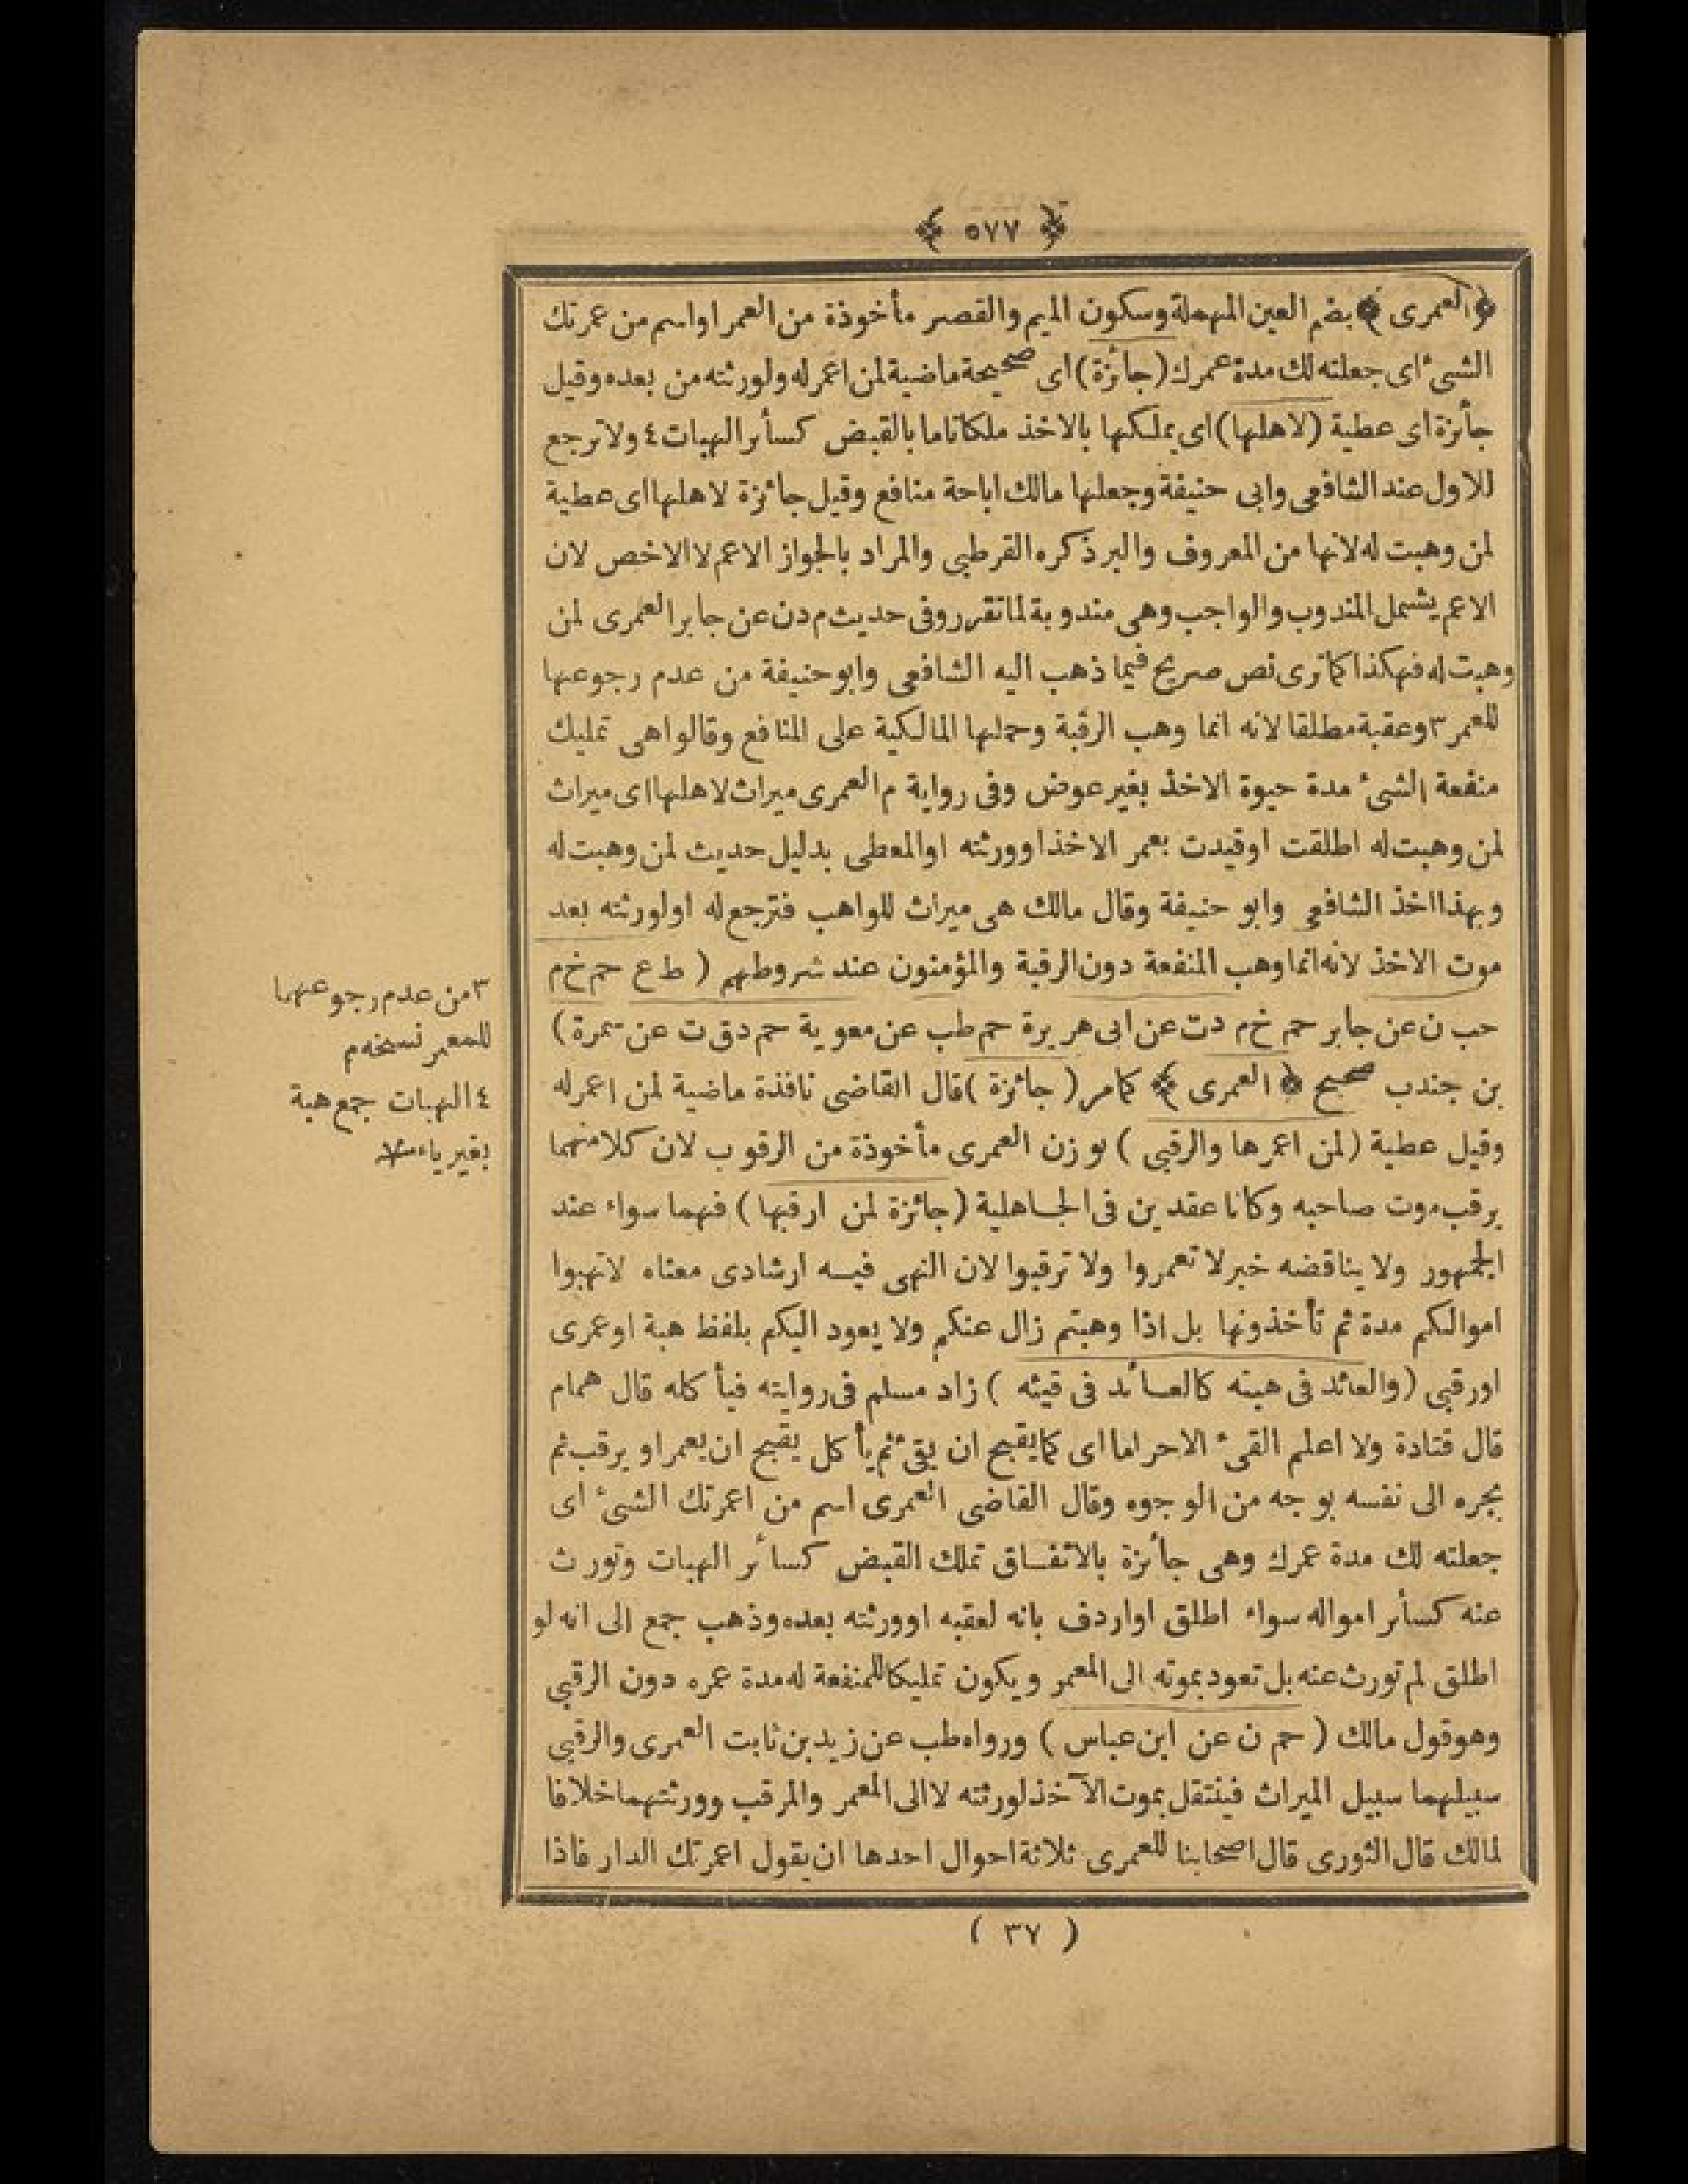 ﴿ ٥٧٧ ﴾
﴿ العمرى ﴾ بضم العين المهملة وسكون الميم والقصر مأخوذة من العمر او اسم من عمرتك
الشىء اى جعلته لك مدة عمرك (جائزة) اى صحيحة ماضية لمن اعمر له ولورثته من بعده وقيل
جأئزة اى عطية (لاهلها) اى يملكها بالاخذ ملكا تاما بالقبض كسأئر الهبات ٤ ولا ترجع
للاول عند الشافعى وابى حنيفة وجعلها مالك اباحة منافع وقيل جائزة لاهلها اى عطية
لمن وهبت له لانها من المعروف والبر ذكره القرطبى والمراد بالجواز الاعم لا الاخص لان
الاعم يشمل المندوب والواجب وهى مندوبة لما تقرر وفى حديث م د ن عن جابر العمرى لمن
وهبت له فهكذا كما ترى نص صريح فيما ذهب اليه الشافعى وابو حنيفة من عدم رجوعها
للعمر ٣ وعقبة مطلقا لانه انما وهب الرقبة وحملها المالكية على المنافع وقالوا هى تمليك
منفعة الشىء مدة حيوة الاخذ بغير عوض وفى رواية م العمرى ميراث لاهلها اى ميراث
لمن وهبت له اطلقت او قيدت بعمر الاخذ او ورثته او المعطى بدليل حديث لمن وهبت له
وبهذا اخذ الشافعى وابو حنيفة وقال مالك هى ميراث للواهب فترجع له او لورثته بعد
موت الاخذ لانه انما وهب المنفعة دون الرقبة والمؤمنون عند شروطهم ( ط ع حم خ م
حب ن عن جابر حم خ م د ت عن ابى هريرة حم طب عن معوية حم د ق ت عن سمرة )
بن جندب صحيح ﴿ العمرى ﴾ كما مر ( جائزة ) قال القاضى نافذة ماضية لمن اعمر له
وقيل عطية (لمن اعمرها والرقبى ) بوزن العمرى مأخوذة من الرقوب لان كلا منهما
يرقب موت صاحبه وكانا عقدين فى الجاهلية (جائزة لمن ارقبها ) فهما سواء عند
الجمهور ولا يناقضه خبر لا تعمروا ولا ترقبوا لان النهى فيه ارشادى معناه لا تهبوا
اموالكم مدة ثم تأخذونها بل اذا وهبتم زال عنكم ولا يعود اليكم بلفظ هبة او عمرى
او رقبى (والعائد فى هبته كالعائد فى قيئه ) زاد مسلم فى روايته فيأكله قال همام
قال قتادة ولا اعلم القىء الا حراما اى كما يقبح ان يقئ ثم يأكل يقبح ان يعمر او يرقب ثم
يجره الى نفسه بوجه من الوجوه وقال القاضى العمرى اسم من اعمرتك الشىء اى
جعلته لك مدة عمرك وهى جأئزة بالاتفاق تملك القبض كسأئر الهبات وتورث
عنه كسأئر امواله سواء اطلق او اردف بانه لعقبه او ورثته بعده وذهب جمع الى انه لو
اطلق لم تورث عنه بل تعود بموته الى المعمر ويكون تمليكا للمنفعة له مدة عمره دون الرقبى
وهو قول مالك ( حم ن عن ابن عباس ) ورواه طب عن زيد بن ثابت العمرى والرقبى
سبيلهما سبيل الميراث فينتقل بموت الآخذ لورثته لا الى المعمر والمرقب وورثتهما خلافا
لمالك قال الثورى قال اصحابنا للعمرى ثلاثة احوال احدها ان يقول اعمرتك الدار فاذا
( ٣٧ )
٣ من عدم رجوعهما
للمعمر نسخه م
٤ الهبات جمع هبة
بغير ياء